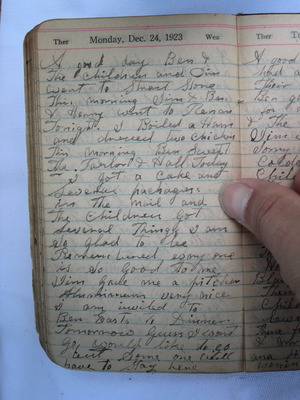 Ther Monday, Dec. 24, 1923 Wea
A good day Ben &
The Children and Jim
went to Short
This morning Jim & Ben
& went to
Tonight. I Boiled a Ham
and dressed two chickens
This morning Ben Swept
The Parlor & Hall Today
I got a Cake and
Several packages
in The mail and
The Children got
Several Things I am
so glad to be
Remembered, every one
is so Good to me
Jim gave me a pitcher
very nice
I am invited to
Ben Easts to Dinner
Tomorrow Guess I wont
Go, would like to go
but Some one will
have to Stay here
Ther
A good
had
Their
for
& The
Jim